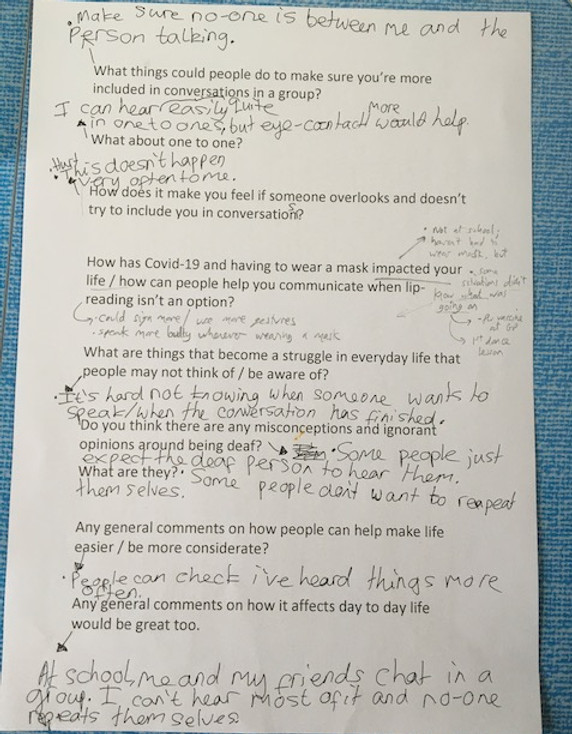 . Make sure no-one is between me and the
Person talking.
What things could people do to make sure you're more
included in conversations in a group?
I can hear easily quite
in one to ones, but eye-contact more would help.
What about one to one?
. Hurt
. This doesn't happen
very often to me.
How does it make you feel if someone overlooks and doesn't
try to include you in conversations?
• Not at school,
haven't had to
wear mask, but
How has Covid-19 and having to wear a mask impacted your
life / how can people help you communicate when lip-
reading isn't an option?
• some
situations didn't
know what was
going on
at GP
1st dance
lesson
• could sign more / use more gestures
• speak more loudly whenever wearing a mask
What are things that become a struggle in everyday life that
people may not think of / be aware of?
. It's hard not knowing when someone wants to
speak/when the conversation has finished.
Do you think there are any misconceptions and ignorant
opinions around being deaf? • Some people just
expect the deaf person to hear them.
What are they? • Some people don't want to reapeat
them selves.
Any general comments on how people can help make life
easier / be more considerate?
. People can check i've heard things more
often.
Any general comments on how it affects day to day life
would be great too.
At school, me and my friends chat in a
group. I can't hear most of it and no-one
repeats them selves.